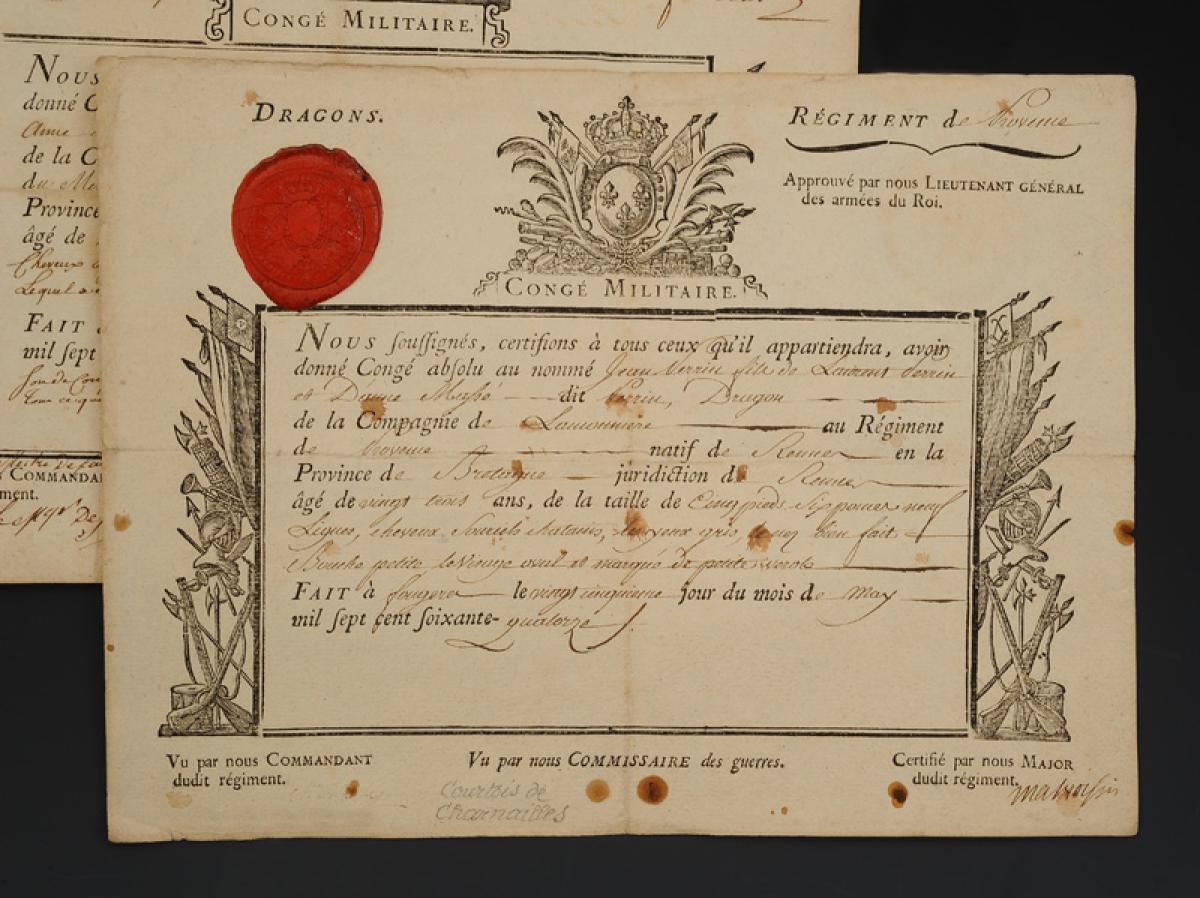 CONGÉ MILITAIRE.
NOUS
donné C
Anne
de la C
du
Province
âgé de
Cheveux
Lequel a
FAIT
mil sept
COMMANDA
ment.
DRAGONS.
RÉGIMENT de Provence
Approuvé par nous LIEUTENANT GÉNÉRAL
des armées du Roi.
CONGÉ MILITAIRE.
NOUS soussignés, certifions à tous ceux qu'il appartiendra, avoir
donné Congé absolu au nommé Jean Perrin fils de Laurent Perrin
et D'anne dit Perrin, Dragon
de la Compagnie de Lamonniere au Régiment
de Provence natif de Rennes en la
Province de Bretagne juridiction de Rennes
âgé de vingt trois ans, de la taille de Cinq pieds Six pouces neuf
Lignes, cheveux Sourcils chatains, les yeux gris, le nez bien fait
Bouche petite le Visage oval et marqué de petite verole
FAIT à fougere le vingt cinquieme jour du mois de May
mil sept cent soixante-quatorze
Vu par nous COMMANDANT
dudit régiment.
Vu par nous COMMISSAIRE des guerres.
Courtois de
Charnailles
Certifié par nous MAJOR
dudit régiment.